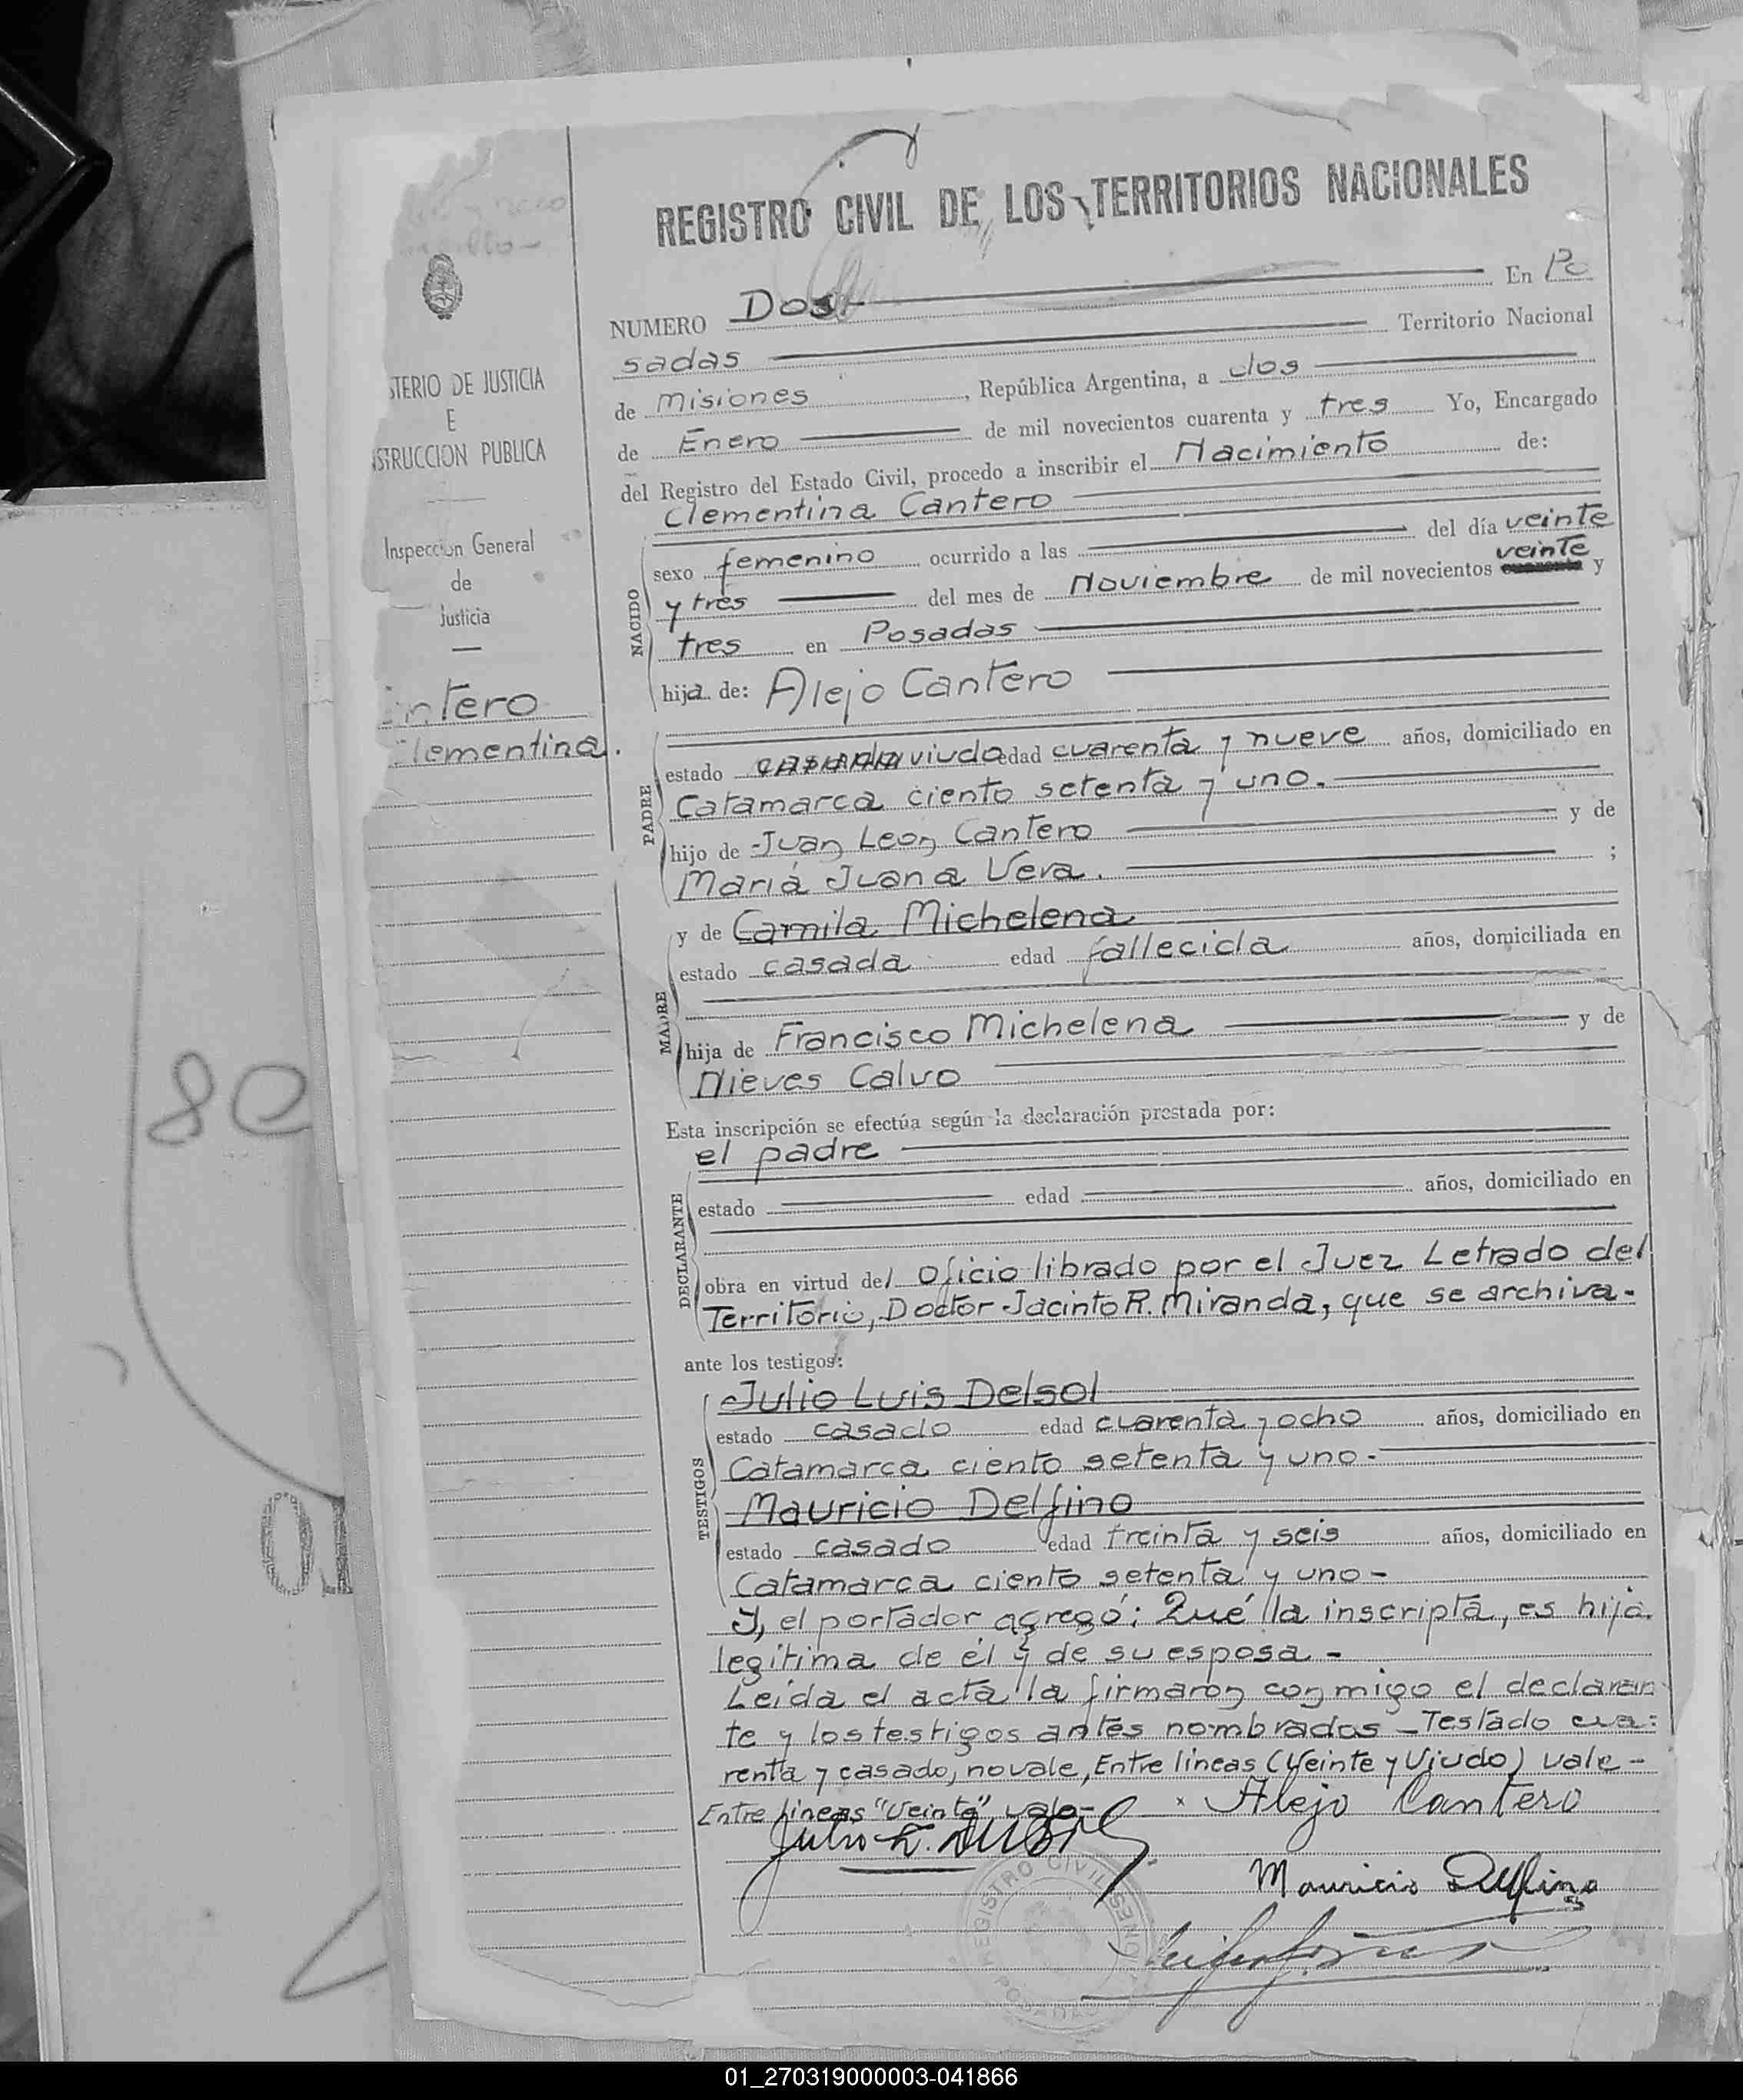 REGISTRO CIVIL DE LOS TERRITORIOS NACIONALES
NUMERO Dos En Po
sadas Territorio Nacional
de Misiones, República Argentina, a dos
de Enero de mil novecientos cuarenta y tres Yo, Encargado
del Registro del Estado Civil, procedo a inscribir el Nacimiento de:
Clementina Cantero
NACIDO
sexo femenino ocurrido a las del día veinte
veinte
y tres del mes de Noviembre de mil novecientos cuarenta y
tres en Posadas
hija de: Alejo Cantero
PADRE
estado casado viudo edad cuarenta y nueve años, domiciliado en
Catamarca ciento setenta y uno.
hijo de Juan Leon Cantero y de
María Juana Vera. ;
y de Camila Michelena
MADRE
estado casada edad fallecida años, domiciliada en
hija de Francisco Michelena y de
Nieves Calvo
Esta inscripción se efectúa según la declaración prestada por:
el padre
DECLARANTE
estado edad años, domiciliado en
obra en virtud del Oficio librado por el Juez Letrado del
Territorio, Doctor Jacinto R. Miranda, que se archiva.
ante los testigos:
Julio Luis Delsol
TESTIGOS
estado casado edad cuarenta y ocho años, domiciliado en
Catamarca ciento setenta y uno.
Mauricio Delfino
estado casado edad treinta y seis años, domiciliado en
Catamarca ciento setenta y uno-
Y, el portador agregó: Qué la inscripta, es hija
legítima de él y de su esposa -
Leída el acta la firmaron conmigo el declaran
te y los testigos antes nombrados - Testado cua:
renta y casado, no vale, Entre lineas (Veinte y Viudo) vale -
Entre lineas "Veinte" vale-
x Alejo Cantero
Mauricio Delfino
REGISTRO CIVIL
POSADAS
STERIO DE JUSTICIA
E
STRUCCION PUBLICA
Inspección General
de
Justicia
ntero
Clementina.
80
01_270319000003-041866